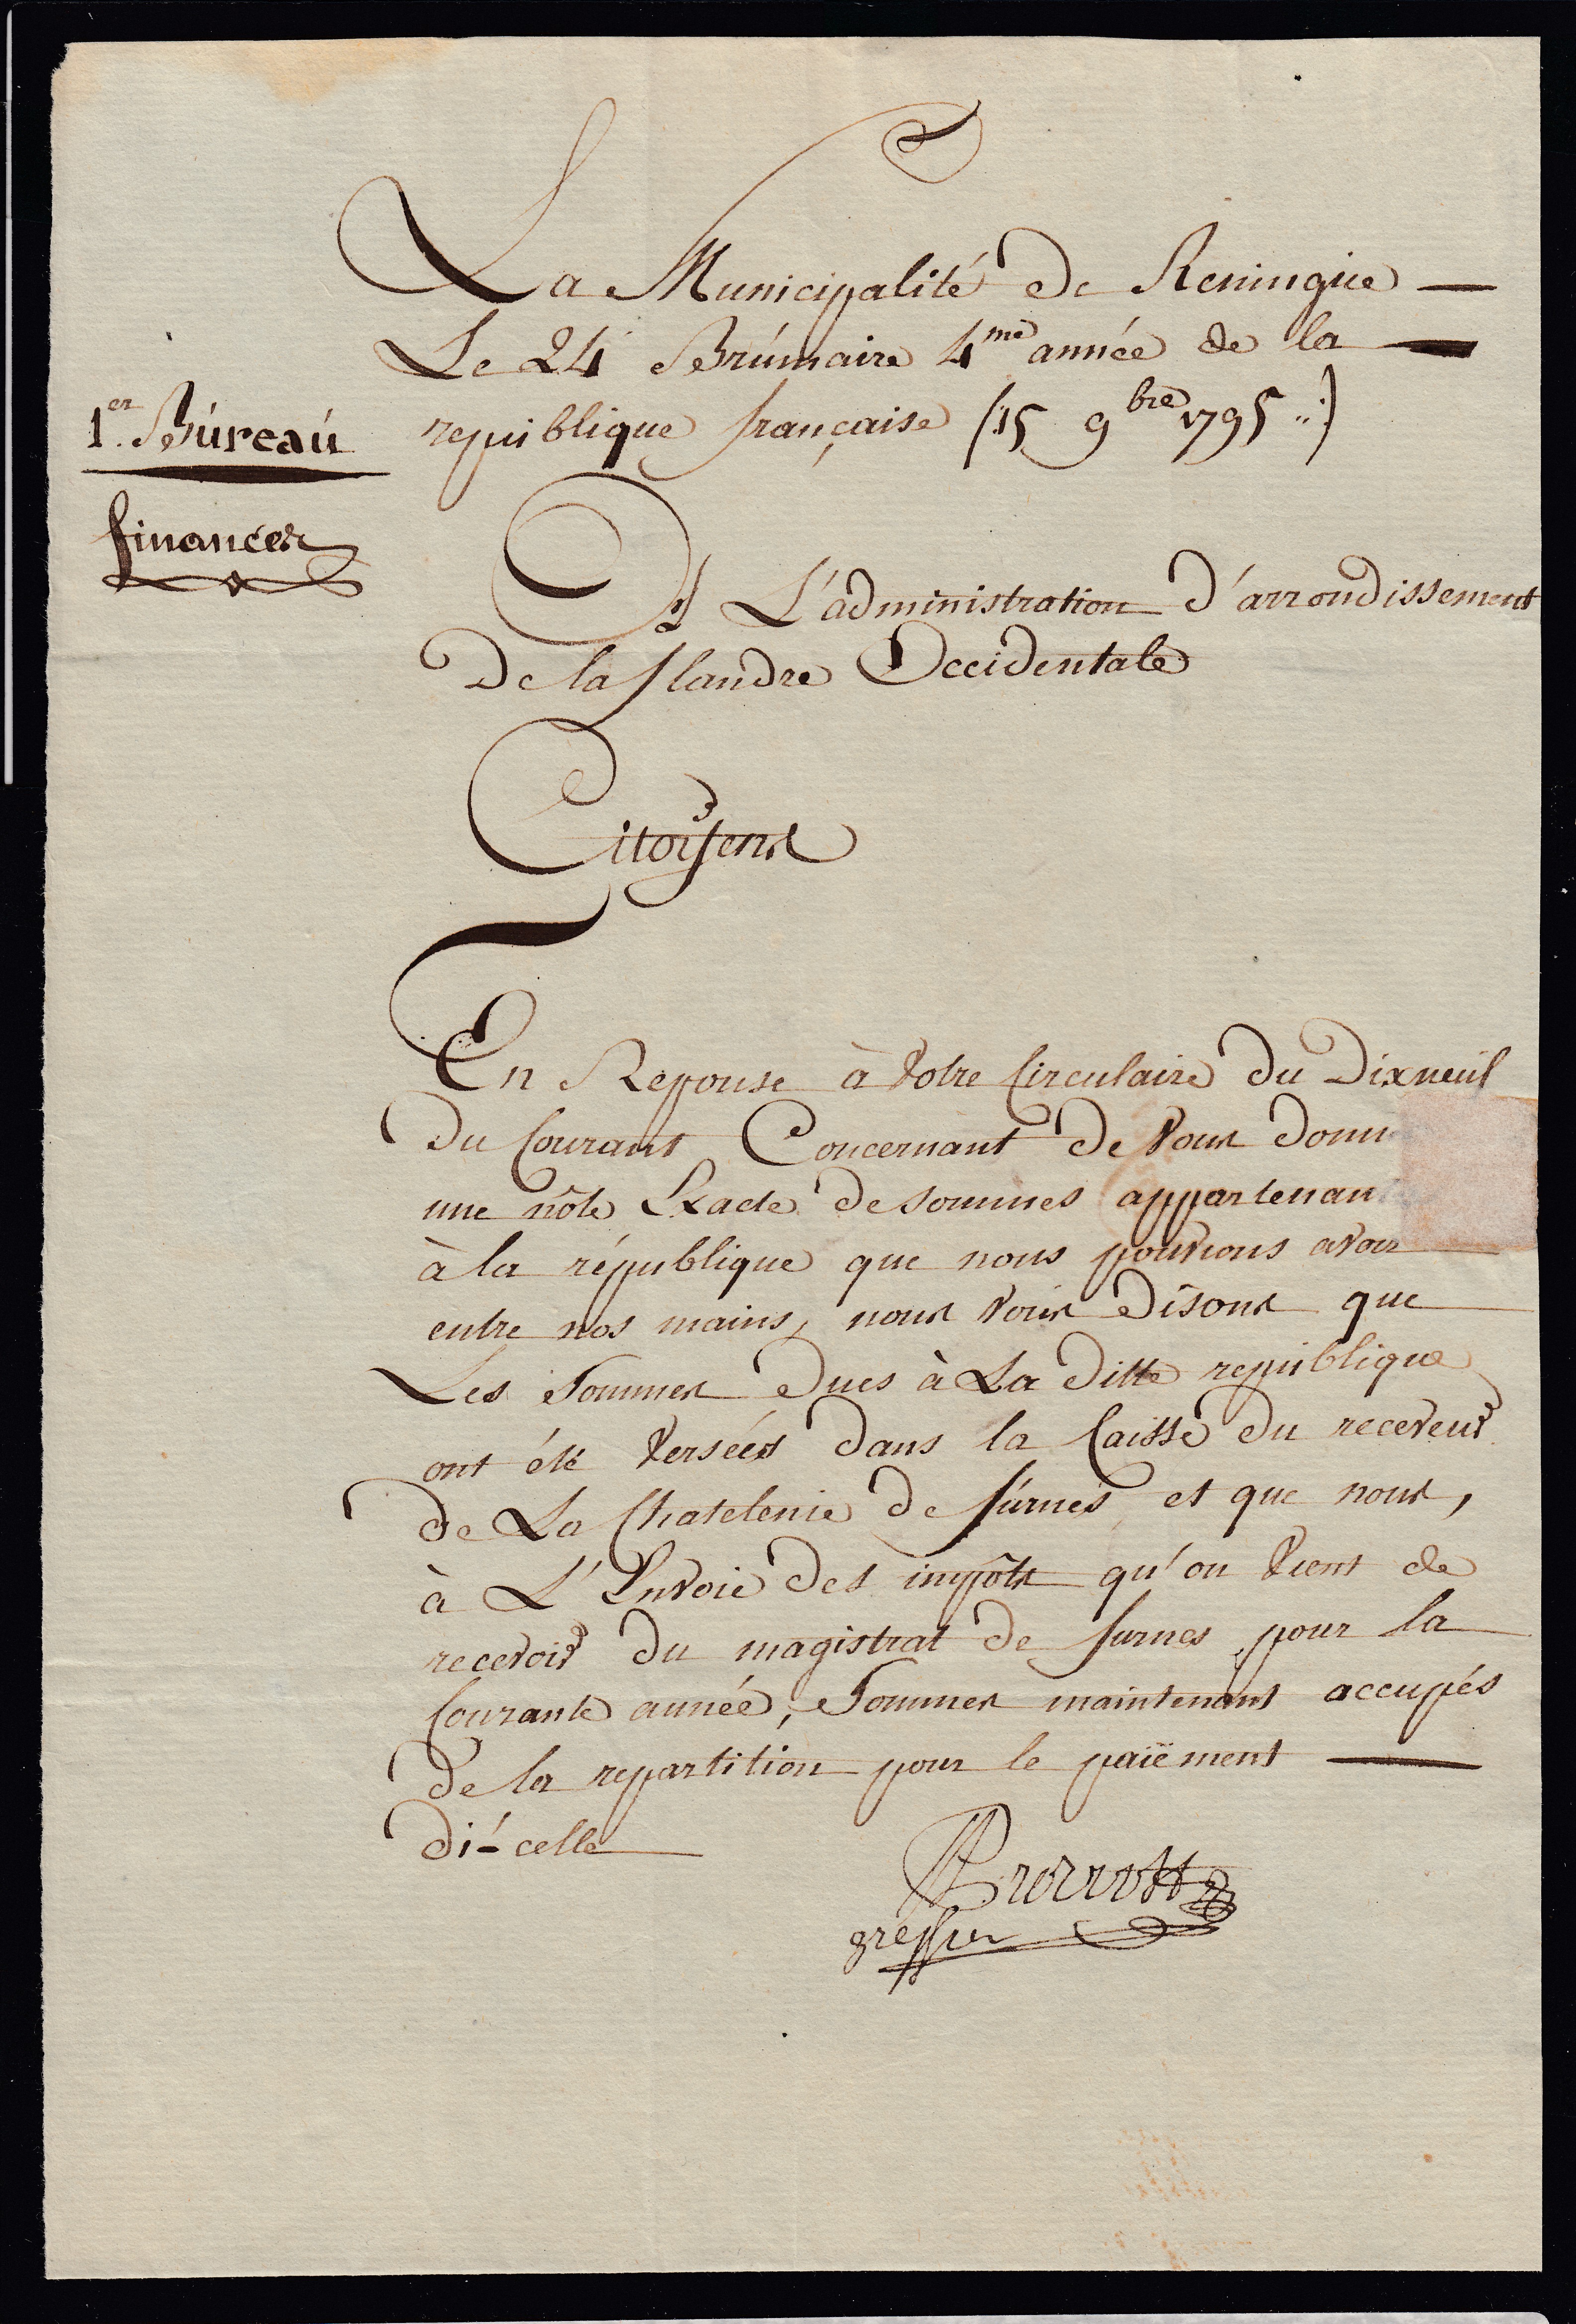 La Municipalité de Reningue
Le 24 Brúmaire 4me année de la
republique française (15 9bre 1795 ..)
1er. Búreaú
finances
A L'administration d'arrondissement
De la flandre Occidentale
Citoÿens
En Reponse à votre Circulaire du Dixneuf
du Courant Concernant de vous donn
une nôte Exacte de sommes appartenan
à la république que nous pouvions avoir
entre nos mains, nous vous disons que
Les Sommes dues à La ditte republique
ont été versées dans la Caisse du receveur
de La Chatelenie de fúrnes et que nous,
à L'Envoie des impôts qu'on vient de
recevoir du magistrat de furnes pour la
Courante année, Sommes maintenant accupés
de la repartition pour le païement
di-celle
greffier